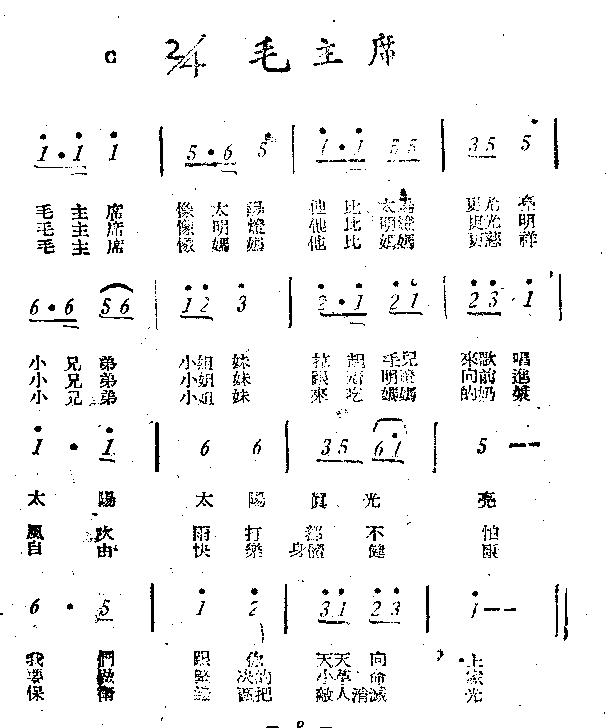 C 2/4 毛主席
1·1 1 | 5·6 5 | 1·1 55 | 35 5 |
毛主席 像太陽 他比太陽 更光亮
毛主席 像明燈 他比明燈 更光明
毛主席 像媽媽 他比媽媽 更慈祥
6·6 56 | 12 3 | 2·1 21 | 23 1 |
小兄弟 小姐妹 兒來歌唱
小兄弟 小姐妹 跟 明燈 向前進
小兄弟 小姐妹 來吃媽媽 的奶
1·1 | 6 6 | 35 61 | 5 -- |
太陽 太陽 真光亮
風吹 雨打 都不怕
自由 快樂 身體健康
6·5 | 1 2 | 31 23 | 1 -- ‖
我們 跟你 天天向上
要做 堅決的 小革命家
保衛 把敵人消滅光
— 8 —